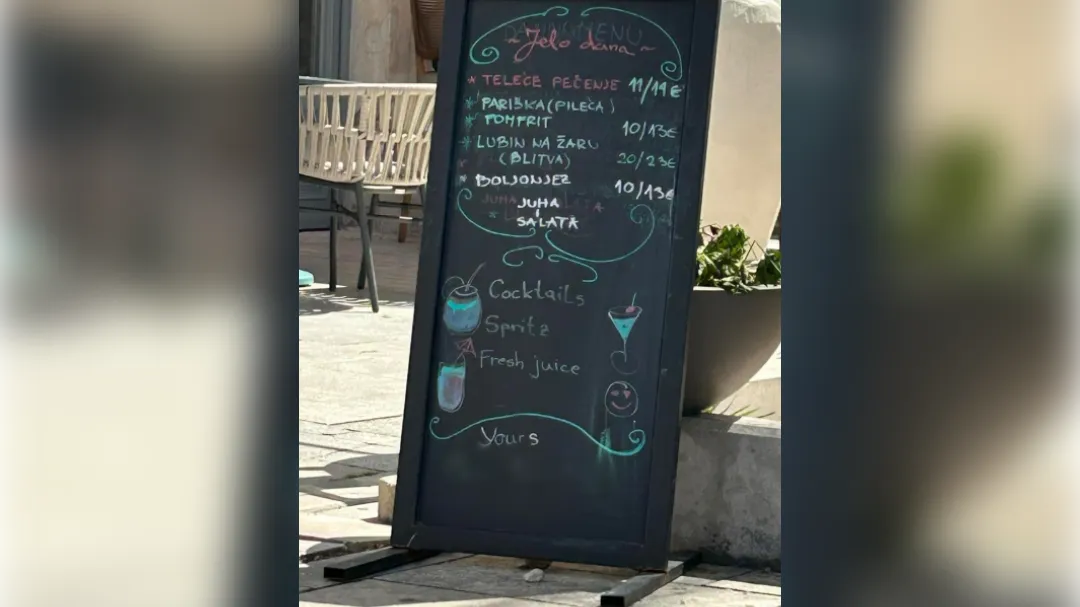 ~ Jelo dana ~
* TELEĆE PEČENJE 11/14€
* PARIŠKA (PILEĆA)
* POMFRIT 10/13€
* LUBIN NA ŽARU
(BLITVA) 20/23€
* BOLJONJEZ 10/13€
JUHA
* SALATA
Cocktails
Spritz
Fresh juice
Yours